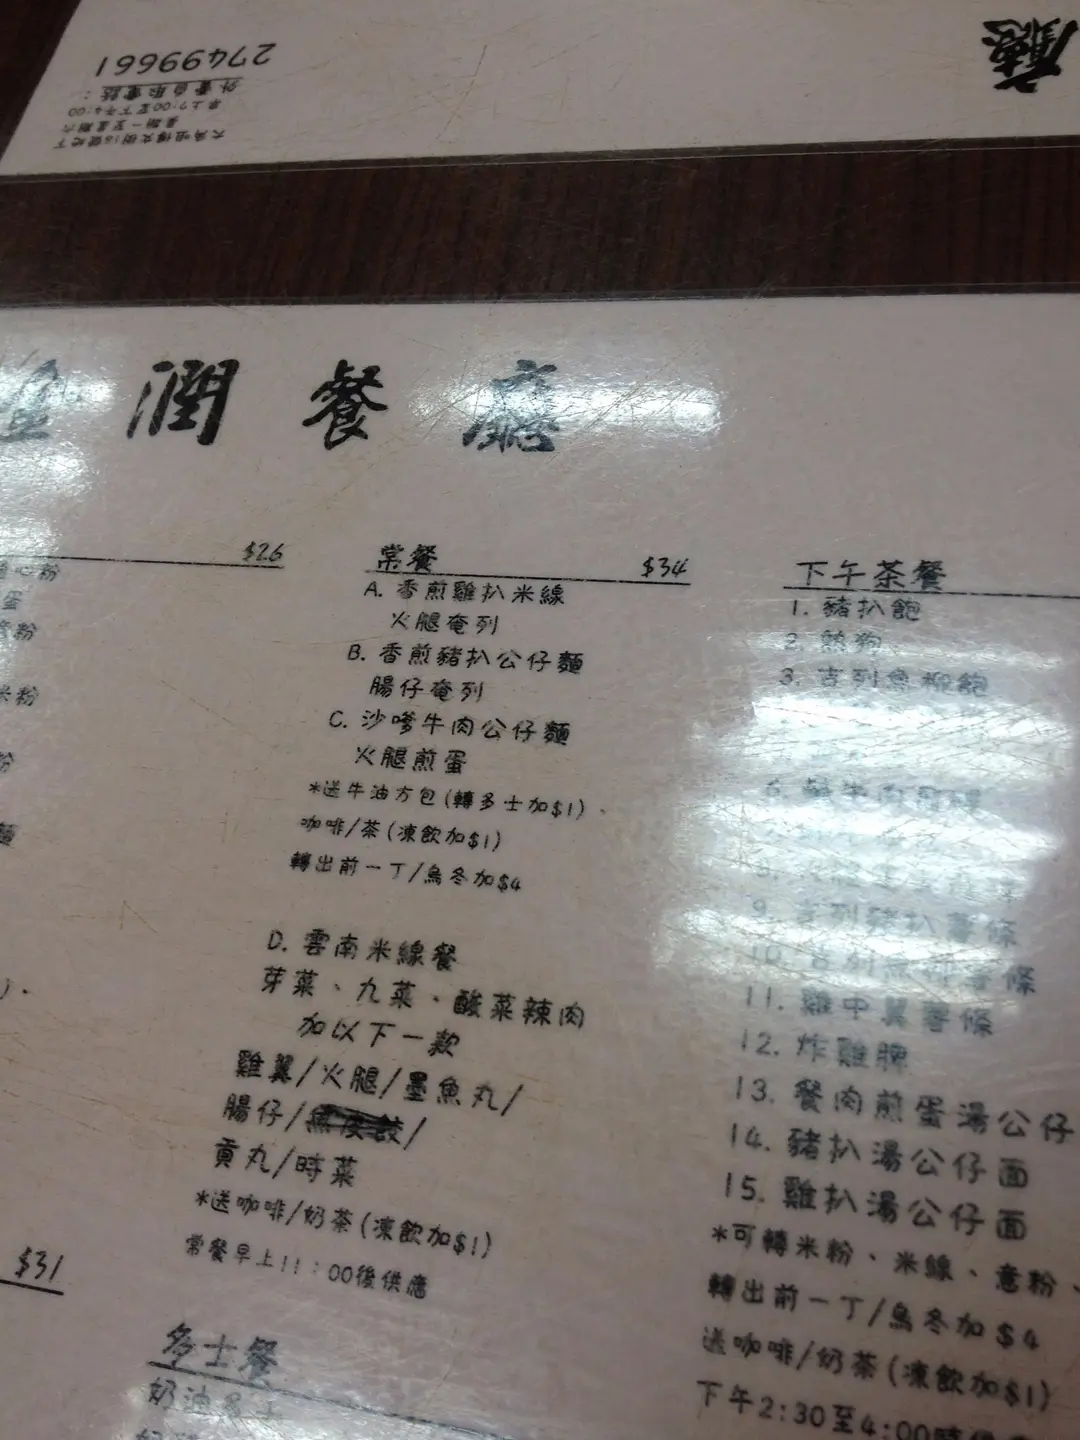 廳
大角咀樺文街16號地下
星期一至星期六
早上7:00至下午4:00
外賣自取電話：
27499661
潤餐廳
$26
心粉
蛋
意粉
米粉
粉
麵
$31
常餐 $34
A. 香煎雞扒米線
火腿奄列
B. 香煎豬扒公仔麵
腸仔奄列
C. 沙嗲牛肉公仔麵
火腿煎蛋
*送牛油方包(轉多士加$1)、
咖啡/茶(凍飲加$1)
轉出前一丁/烏冬加$4
D. 雲南米線餐
芽菜、九菜、酸菜辣肉
加以下一款
雞翼/火腿/墨魚丸/
腸仔/
貢丸/時菜
*送咖啡/奶茶(凍飲加$1)
常餐早上11：00後供應
多士餐
奶油多士
下午茶餐
1. 豬扒飽
2. 熱狗
3. 吉列魚柳飽
6.
9. 吉列豬扒薯條
10. 吉列魚柳薯條
11. 雞中翼薯條
12. 炸雞脾
13. 餐肉煎蛋湯公仔
14. 豬扒湯公仔面
15. 雞扒湯公仔面
*可轉米粉、米線、意粉、
轉出前一丁/烏冬加$4
送咖啡/奶茶(凍飲加$1)
下午2:30至4:00時